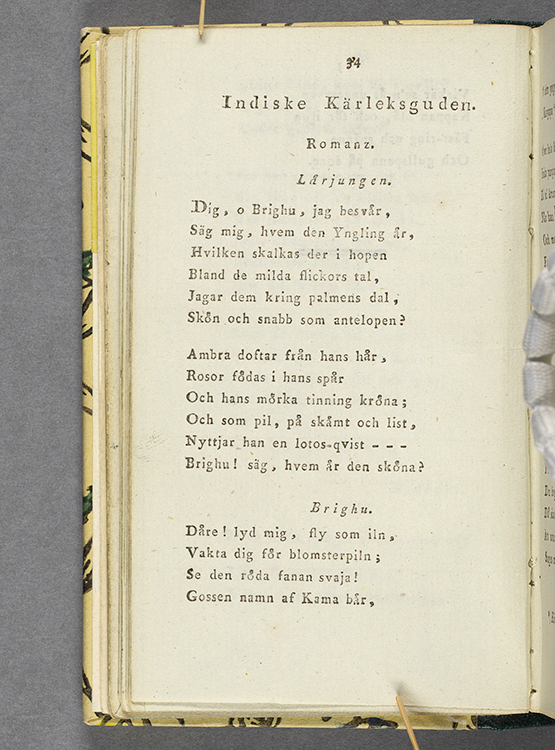 34
Indiske Kärleksguden.
Romanz.
Lårjungen.
Dig, o Brighu, jag besvår,
Såg mig, hvem den Yngling år,
Hvilken skalkas der i hopen
Bland de milda flickors tal,
Jagar dem kring palmens dal,
Skön och snabb som antelopen?
Ambra doftar från hans hår,
Rosor födas i hans spår
Och hans mörka tinning kröna;
Och som pil, på skåmt och list,
Nyttjar han en lotos-qvist - - -
Brighu! såg, hvem år den sköna?
Brighu.
Dåre! lyd mig, fly som iln,
Vakta dig för blomsterpiln;
Se den röda fanan svaja!
Gossen namn af Kama bår,